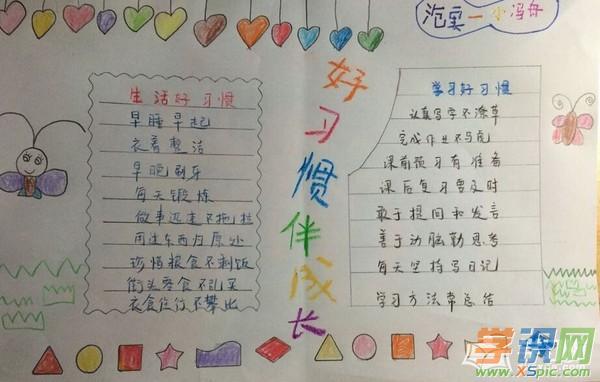 范实一小冯毋
生活好习惯
早睡早起
衣着整洁
早晚刷牙
每天锻炼
做事迅速不拖拉
用过东西归原处
珍惜粮食不剩饭
街头零食不乱买
衣食住行不攀比
好习惯伴成长
学习好习惯
认真写字不潦草
完成作业不马虎
课前预习有准备
课后复习要及时
敢于提问和发言
善于动脑勤思考
每天坚持写日记
学习方法常总结
学课网
www.XSpic.com